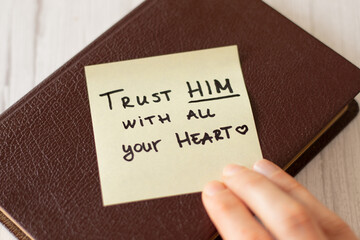 TRUST HIM
WITH ALL
your HEART♡